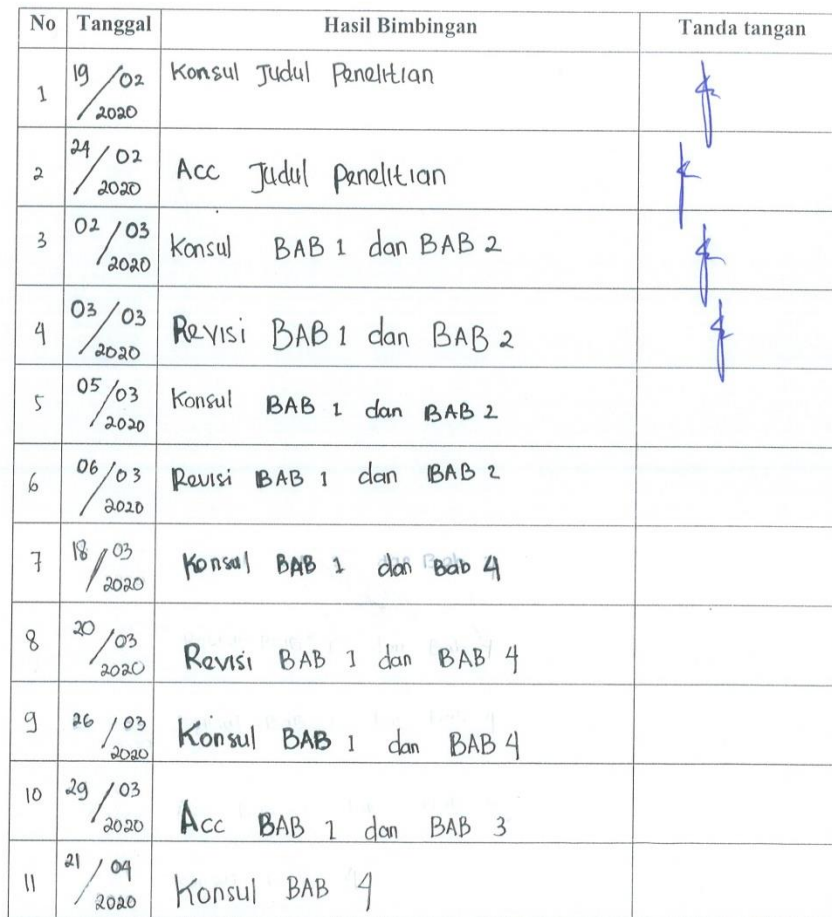 No Tanggal Hasil Bimbingan Tanda tangan
1 19/02 2020 Konsul Judul Penelitian
2 24/02 2020 Acc Judul Penelitian
3 02/03 2020 Konsul BAB 1 dan BAB 2
4 03/03 2020 Revisi BAB 1 dan BAB 2
5 05/03 2020 Konsul BAB 1 dan BAB 2
6 06/03 2020 Revisi BAB 1 dan BAB 2
7 18/03 2020 Konsul BAB 1 dan Bab 4
8 20/03 2020 Revisi BAB 1 dan BAB 4
9 26/03 2020 Konsul BAB 1 dan BAB 4
10 29/03 2020 Acc BAB 1 dan BAB 3
11 21/04 2020 Konsul BAB 4